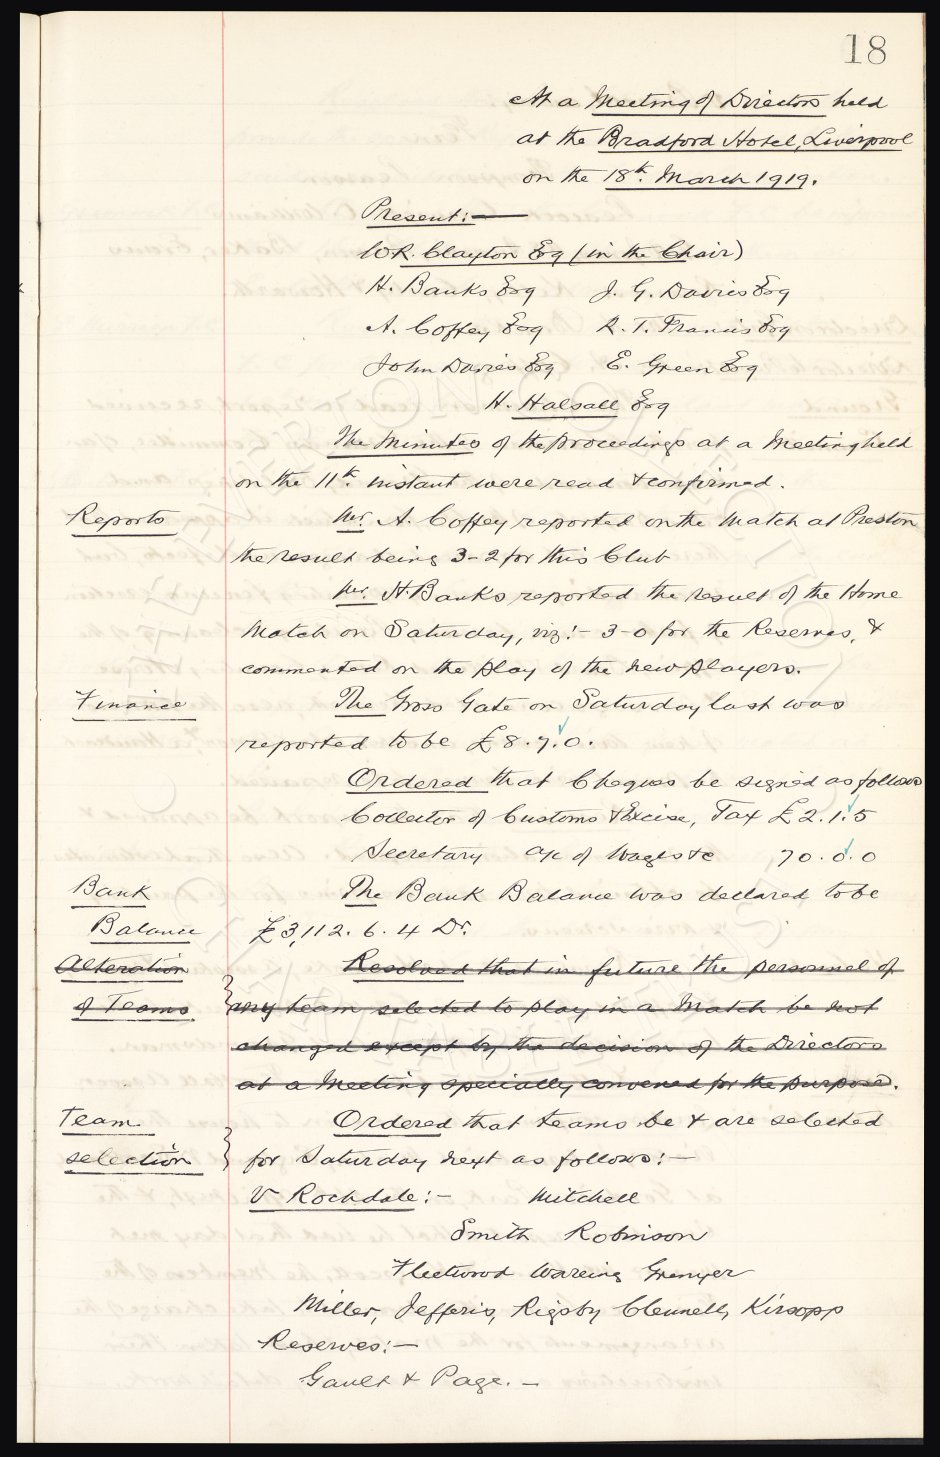 18
At a Meeting of Directors held
at the Bradford Hotel, Liverpool
on the 18th. March 1919.
Present:—
W.R. Clayton Esq (in the Chair)
H. Banks Esq J. G. Davies Esq
A. Coffey Esq R. T. Francis Esq
John Davies Esq E. Green Esq
H. Halsall Esq
The Minutes of the proceedings at a Meeting held
on the 11th. instant were read & confirmed.
Reports Mr. A. Coffey reported on the Match at Preston
the result being 3-2 for this Club
Mr. H. Banks reported the result of the Home
Match on Saturday, viz:- 3-0 for the Reserves, &
commented on the play of the new players.
Finance The Gross Gate on Saturday last was
reported to be £8.7.0.
Ordered that Cheques be signed as follows
Collector of Customs & Excise, Tax £2.1.5
Secretary a/c of Wages &c 70.0.0
Bank The Bank Balance was declared to be
Balance £3,112.6.4 Dr.
Alteration Resolved that in future the personnel of
of Teams any team selected to play in a Match be not
changed except by the decision of the Directors
at a Meeting specially convened for the purpose.
Team Ordered that teams be & are selected
selection for Saturday next as follows:—
V Rochdale:— Mitchell
Smith Robinson
Fleetwood Wareing Grenyer
Miller, Jefferis, Rigsby Clennell, Kirsopp
Reserves:—
Gault & Page.—